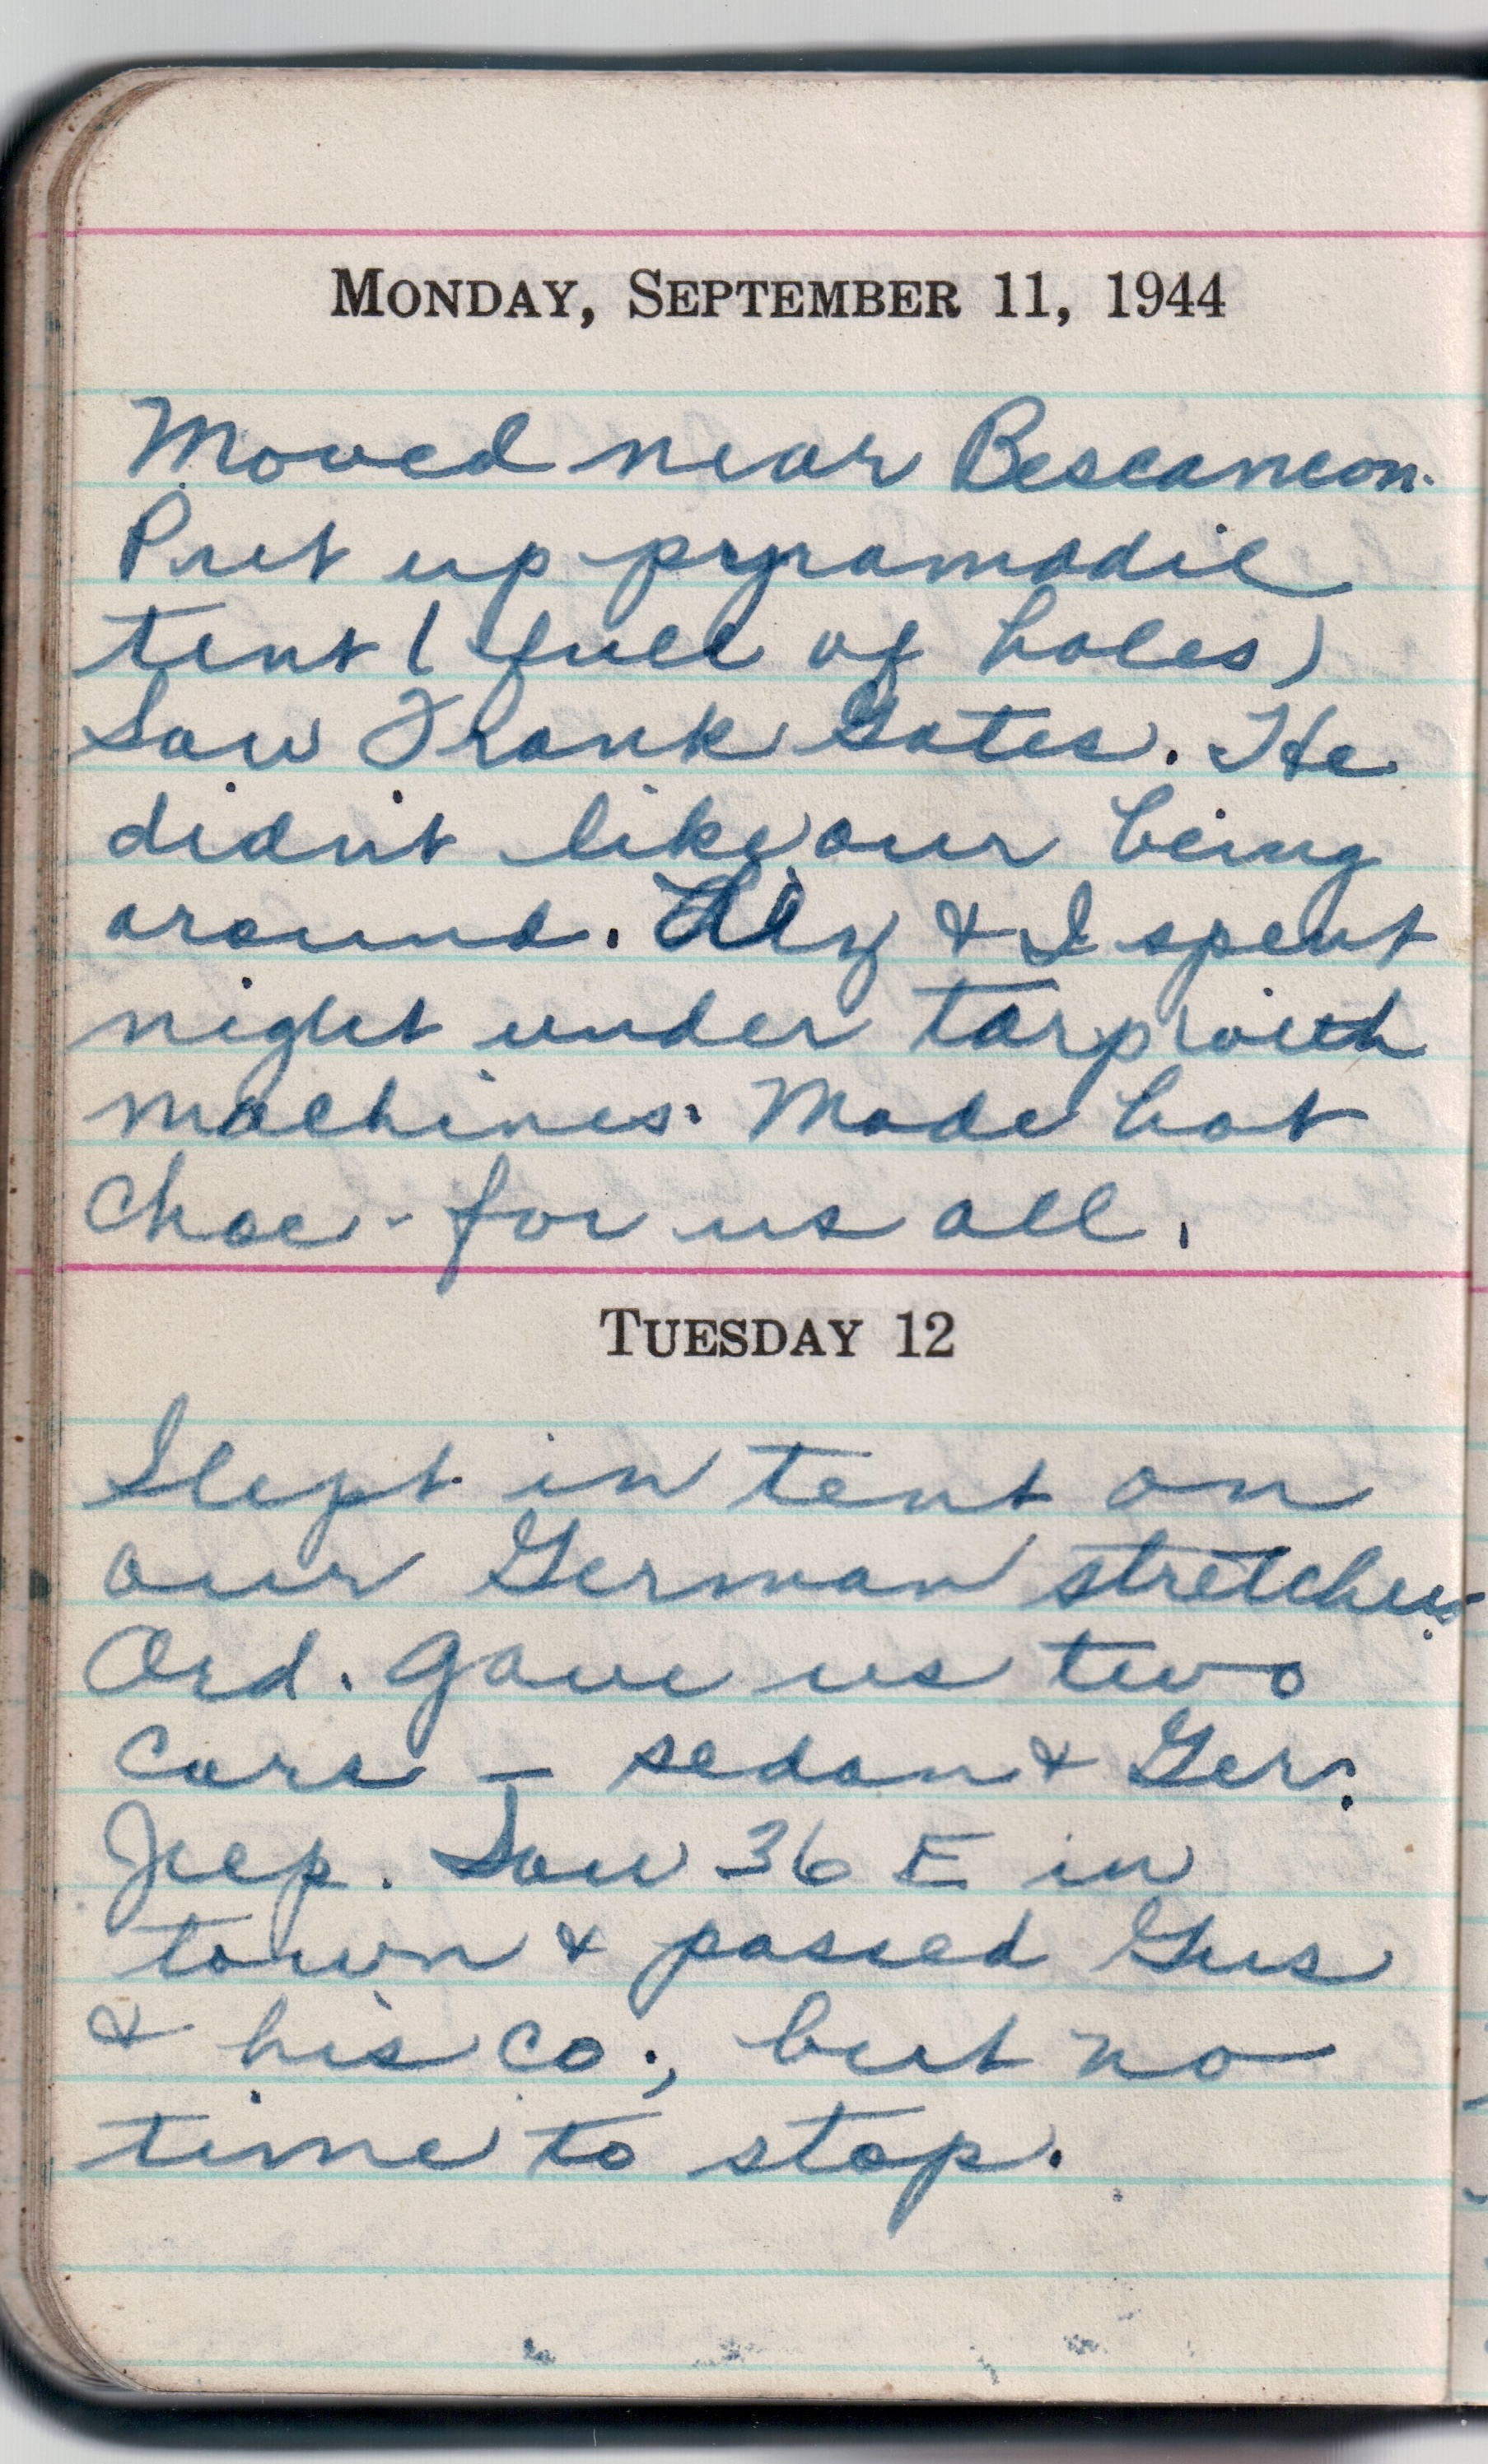 MONDAY, SEPTEMBER 11, 1944
Moved near Bescancon.
Put up pyramadil
tent (full of holes)
Saw Frank Gates. He
didn't like our being
around. & I spent
night under tarp with
machines. Made hot
choc. for us all.
TUESDAY 12
Slept in tent on
our German stretchers.
Ord. gave us two
cars – sedan & Ger.
Jeep. Saw 36 E in
town & passed Gus
& his co., but no
time to stop.